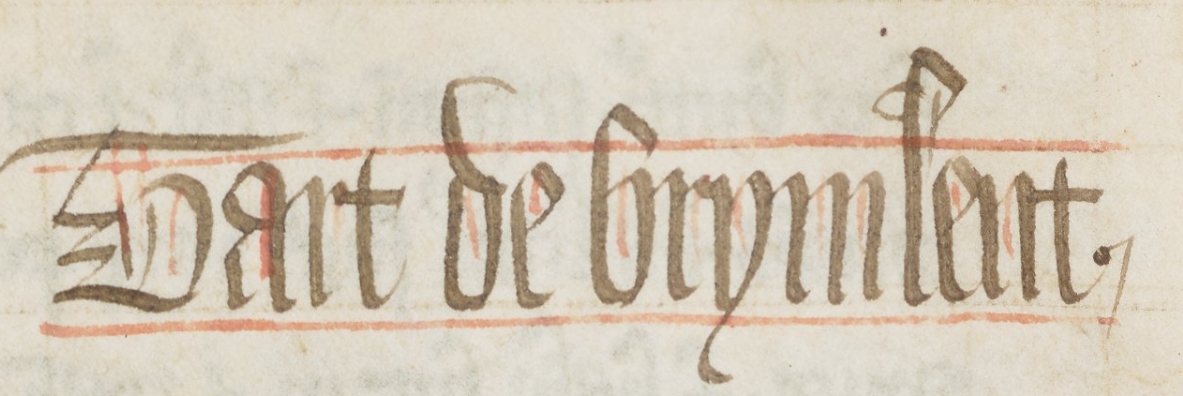 Dart de brymleut.